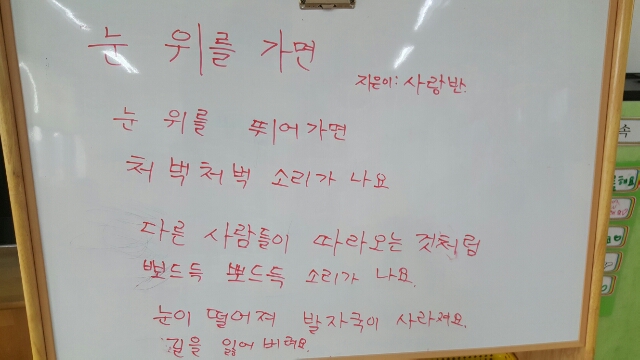 눈 위를 가면
지은이: 사랑반
눈 위를 뛰어가면
처벅처벅 소리가 나요
다른 사람들이 따라오는 것처럼
뽀드득 뽀드득 소리가 나요.
눈이 떨어져 발자국이 사라져요.
길을 잃어 버려요.
속